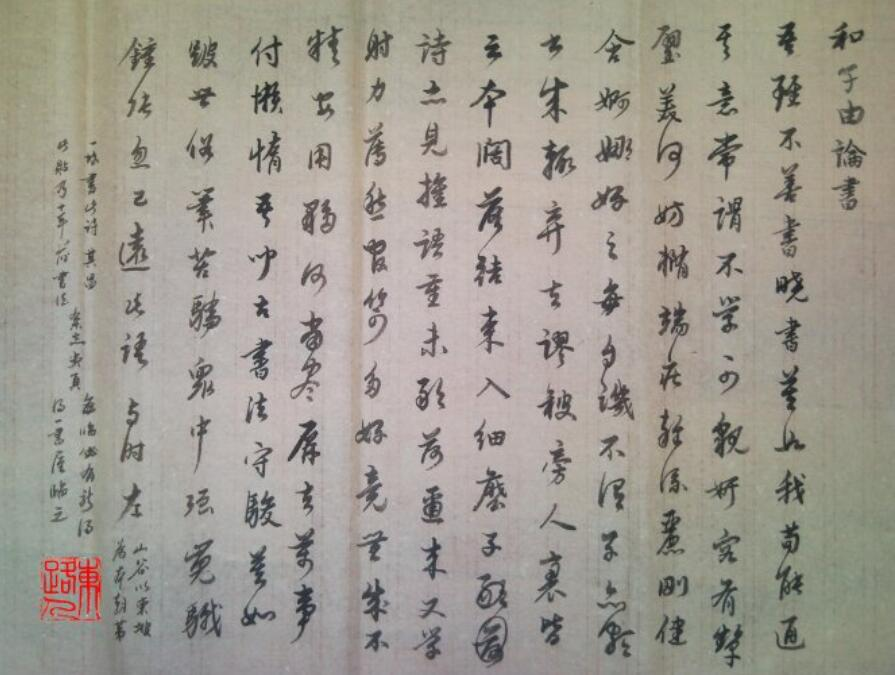 和子由論書
吾雖不善書曉書莫如我苟能通
其意常謂不學可貌妍容有顰
璧美何妨橢端莊雜流麗剛健
含婀娜好之每自譏不謂子亦頗
書成輒棄去謬被旁人裹皆
云本闊落結束入細麼子
詩亦見推語重未敢荷邇來又學
射力薄愁官笴多好竟無成不
精安用夥何當盡屏去萬事
付懶惰吾聞古書法守駿莫如
跛世俗筆苦驕眾中強嵬騀
鍾張忽已遠此語與時左
山谷以東坡
為本朝第
一故書此詩 其昌
此帖乃 書法
每臨必有新得
得一書屋臨之